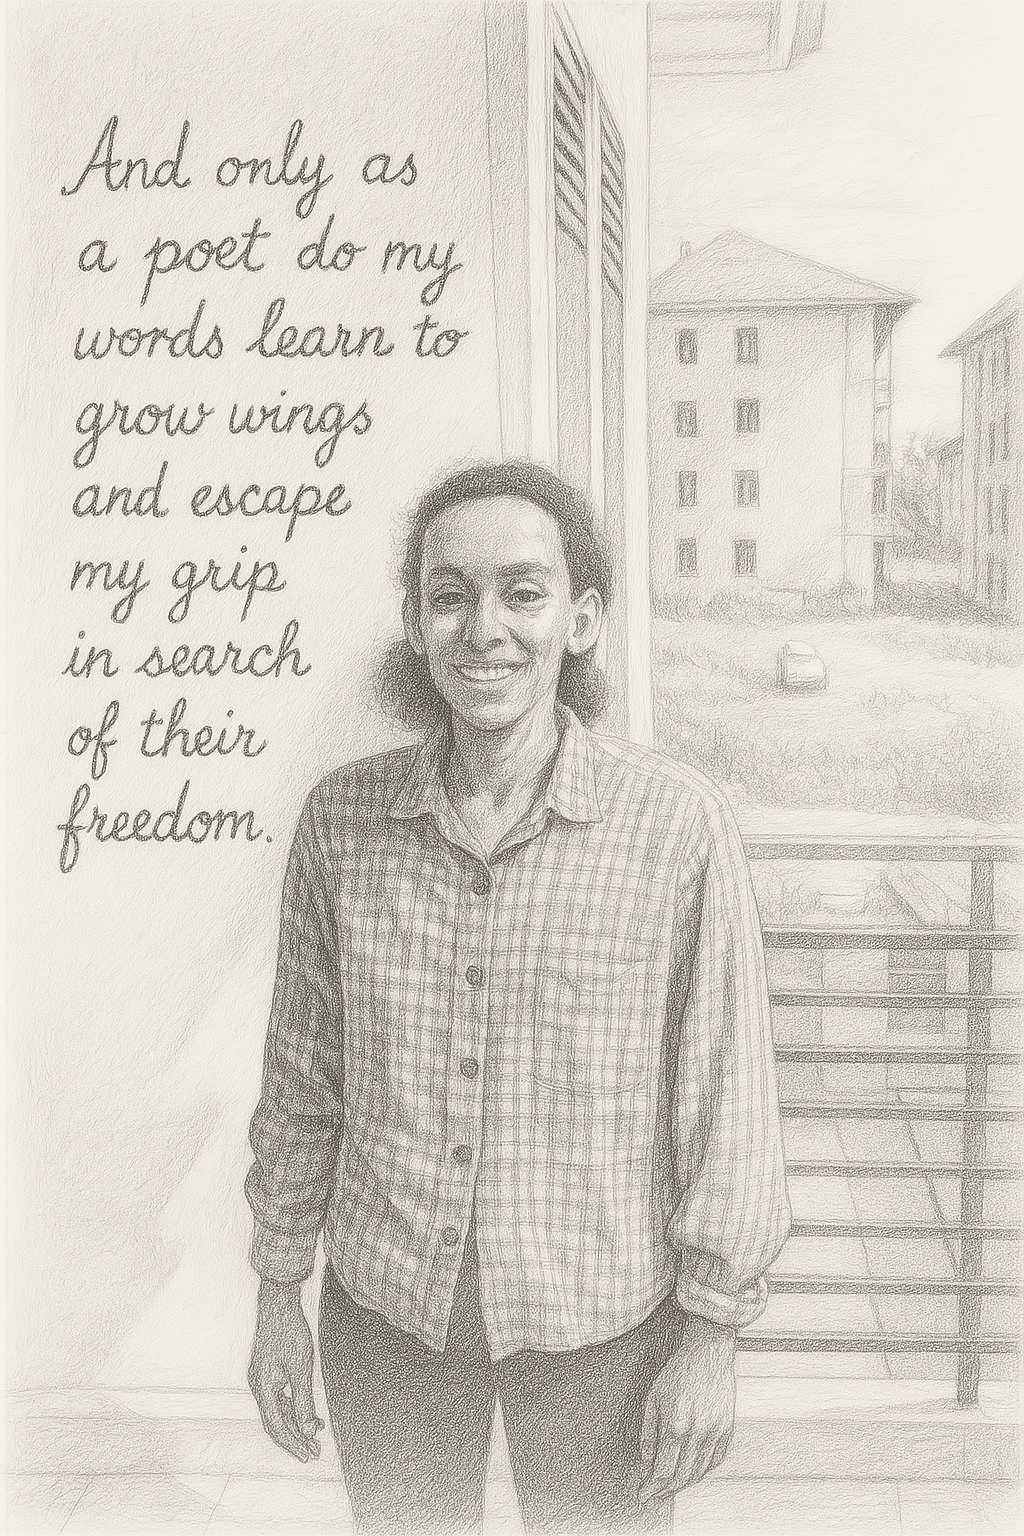 And only as
a poet do my
words learn to
grow wings
and escape
my grip
in search
of their
freedom.